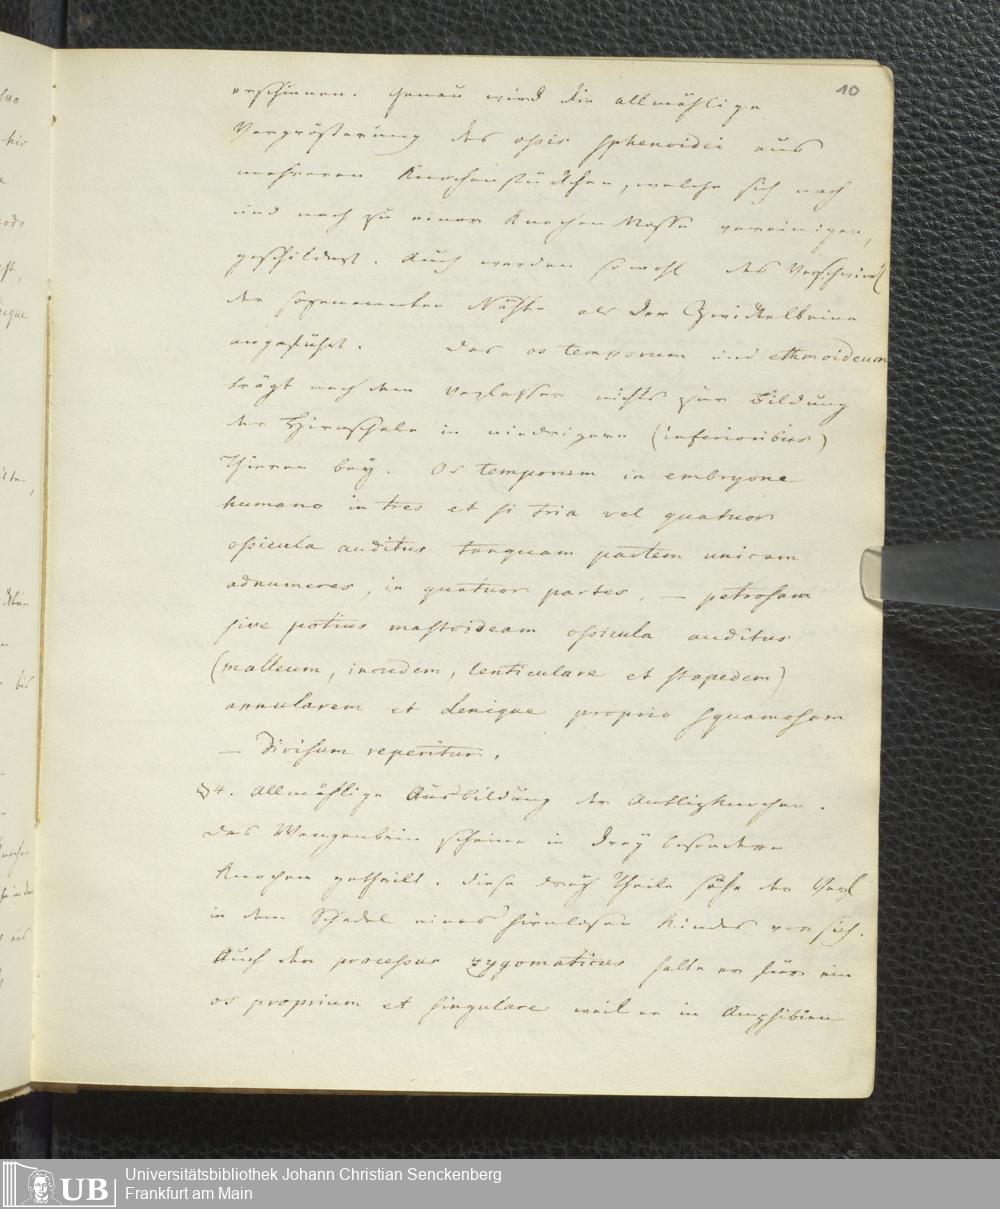 10
erschienen. Genau wird die allmählige
Vergrößerung des ossis sphenoidei aus
mehreren Knochenstückchen, welche sich nach
und nach zu einer Knochen Masse vereinigen,
geschildert. Auch werden sowohl das Verschwind
der sogenannten Nähte als der Zwickelbeine
angeführt. Das os temporum und ethmoideum
trägt nach dem Verfasser nichts zur Bildung
der Hirnschale in niedrigern (inferioribus)
Thieren bey. Os temporum in embryone
humano in tres et si tria vel quatuor
ossicula auditus tanquam partem unicam
adnumeres, in quatuor partes, — petrosam
sive potius mastoideam ossicula auditus
(malleum, incudem, lenticulare et stapedem)
annularem et denique proprio squamosam
— divisum reperitur.
§ 4. Allmählige Ausbildung der Antlizknochen.
Das Wangenbein scheine in drey besondere
Knochen getheilt. Diese drey Theile sähe der Verf
in dem Schedel eines hirnlosen Kindes vor sich.
Auch den processus zygomaticus halte er für ein
os proprium et singulare weil er in Amphibien
UB
Universitätsbibliothek Johann Christian Senckenberg
Frankfurt am Main